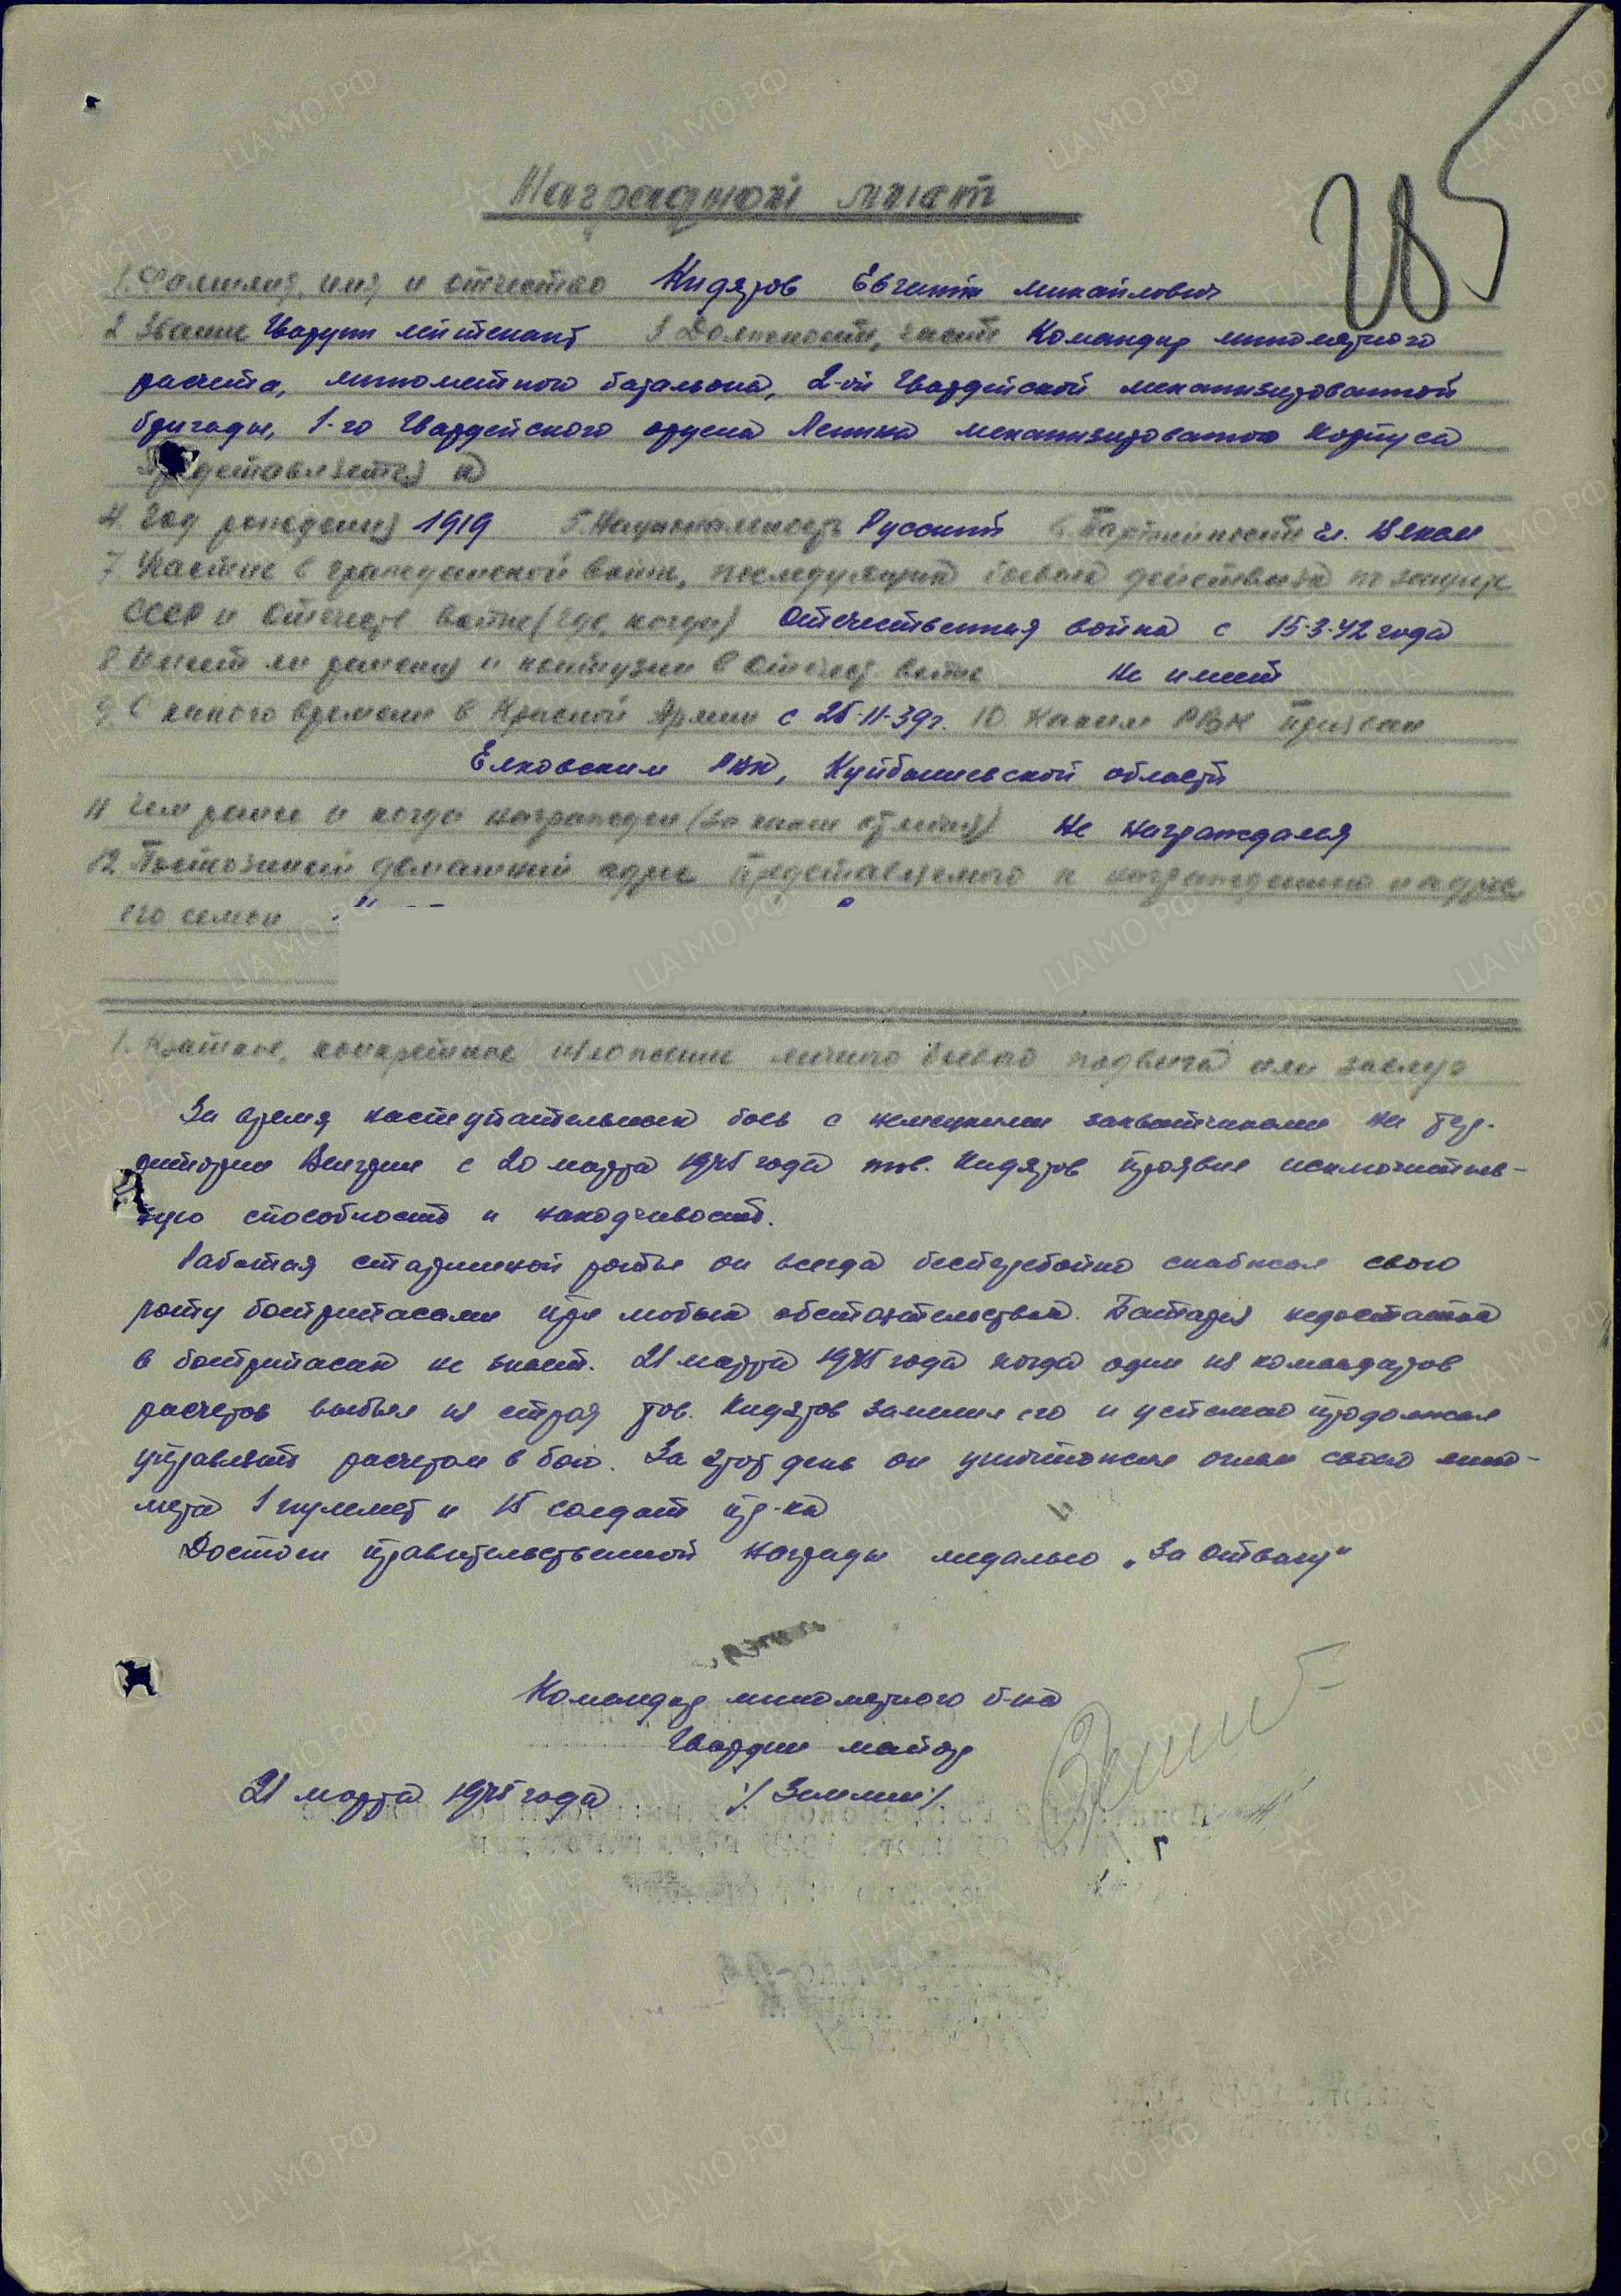 285
Наградной лист
1. Фамилия, имя и отчество Кидяров Евгений михайлович
2 Звание Гвардии лейтенант 3 Должность, часть Командир минометного
расчета, минометного батальона, 2-ой Гвардейской механизированной
бригады, 1-го Гвардейского ордена Ленина механизированого Корпуса
Представляется к
4. Год рождения 1919 5. Национальность Русский 6. Партийность чл. ВЛКСМ
7 Участие в гражданской войне, последующих боевых действиях по защите
СССР и Отечеств войне (где, когда) Отечественная война с 15.3.42 года
8 Имеет ли ранения и контузии в Отечест. войне Не имеет
9. С какого времени в Красной Армии с 25.11.39г. 10 Каким РВК призван
Елховским РВК, Куйбышевской области
11 Чем ранее и когда награжден (за какие отличия) Не награждался
12 Постоянный домашний адрес представляемого к награждению и адрес
его семьи
1. Краткое, конкретное изложение личного боевого подвига или заслуг
За время наступательных боев с немецкими захватчиками на тер-
ритории Венгрии с 20 марта 1945 года тов. Кидяров проявил исключитель-
ную способность и находчивость.
Работая старшиной роты он всегда бесперебойно снабжал свою
роту боеприпасами при любых обстоятельствах. Батарея недостатка
в боеприпасах не знает. 21 марта 1945 года когда один из командиров
расчетов выбыл из строя тов. Кидяров заменил его и успешно продолжал
управлять расчетом в бою. За этот день он уничтожил огнем своего мино-
мета 1 пулемет и 15 солдат пр-ка
Достоин правительственной награды медалью „За Отвагу“
Командир минометного б-на
Гвардии майор
21 марта 1945 года /Зимин/